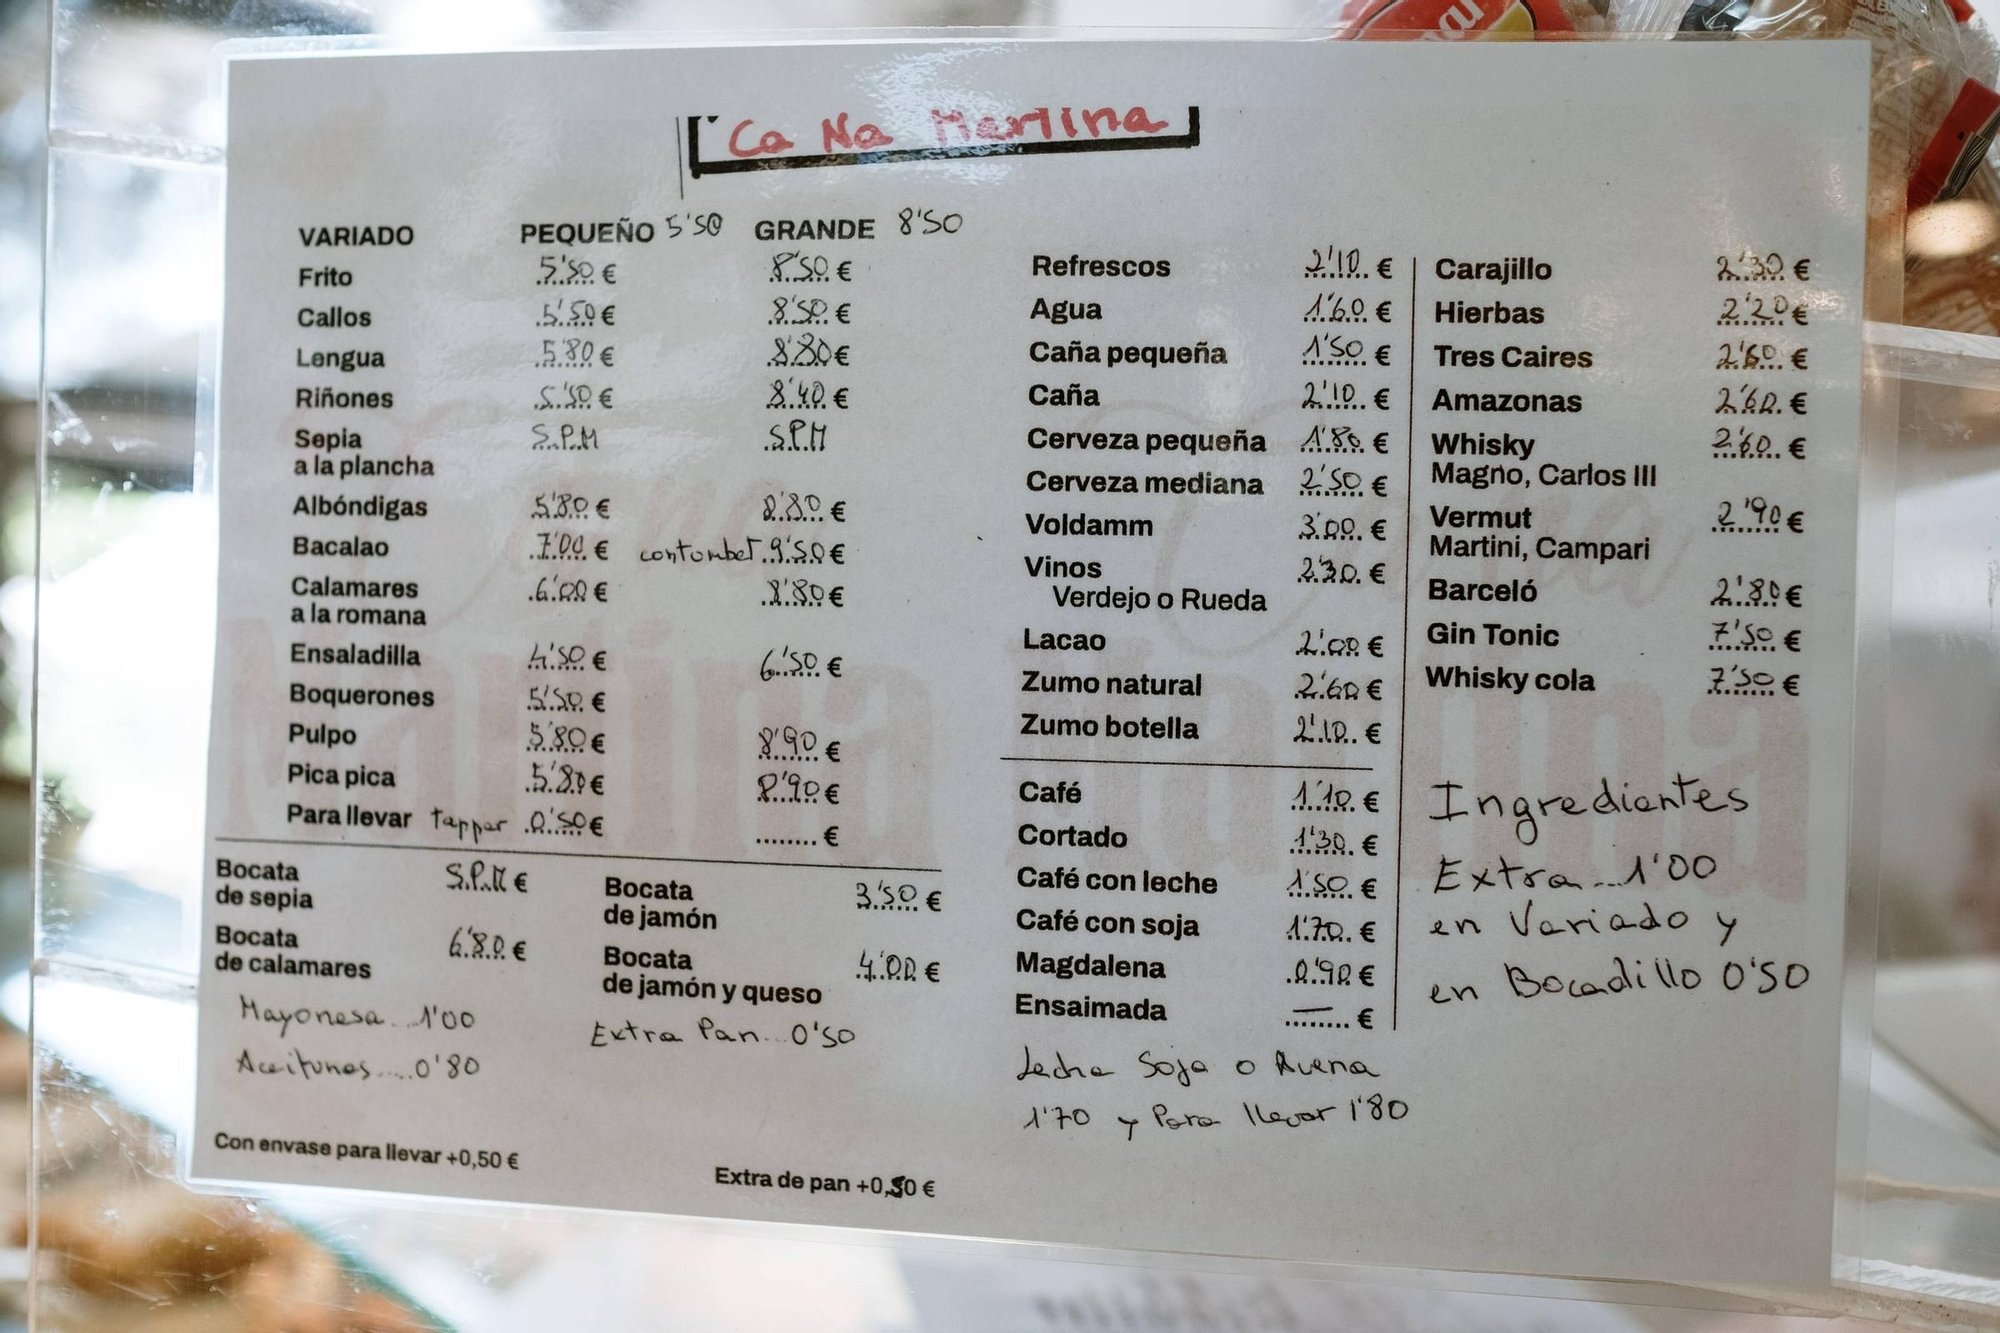 Ca Na Martina
VARIADO PEQUEÑO 5'50 GRANDE 8'50
Frito 5'50 € 8'50 €
Callos 5'50 € 8'50 €
Lengua 5'80 € 8'80 €
Riñones 5'50 € 8'40 €
Sepia S.P.M S.P.M
a la plancha
Albóndigas 5'80 € 8'80 €
Bacalao 7'00 € contumbet 9'50 €
Calamares 6'00 € 8'80 €
a la romana
Ensaladilla 4'50 € 6'50 €
Boquerones 5'50 €
Pulpo 5'80 € 8'90 €
Pica pica 5'80 € 8'90 €
Para llevar tapper 0'50 € ........ €
Bocata S.P.M €
de sepia
Bocata 6'80 €
de calamares
Mayonesa...1'00
Aceitunas.....0'80
Bocata 3'50 €
de jamón
Bocata 4'00 €
de jamón y queso
Extra Pan...0'50
Con envase para llevar +0,50 €
Extra de pan +0,50 €
Refrescos 2'10 €
Agua 1'60 €
Caña pequeña 1'50 €
Caña 2'10 €
Cerveza pequeña 1'80 €
Cerveza mediana 2'50 €
Voldamm 3'00 €
Vinos 2'30 €
Verdejo o Rueda
Lacao 2'00 €
Zumo natural 2'60 €
Zumo botella 2'10 €
Café 1'10 €
Cortado 1'30 €
Café con leche 1'50 €
Café con soja 1'70 €
Magdalena 0'90 €
Ensaimada — €
Leche Soja o Avena
1'70 y Para llevar 1'80
Carajillo 2'30 €
Hierbas 2'20 €
Tres Caires 2'60 €
Amazonas 2'60 €
Whisky 2'60 €
Magno, Carlos III
Vermut 2'90 €
Martini, Campari
Barceló 2'80 €
Gin Tonic 7'50 €
Whisky cola 7'50 €
Ingredientes
Extra...1'00
en Variado y
en Bocadillo 0'50